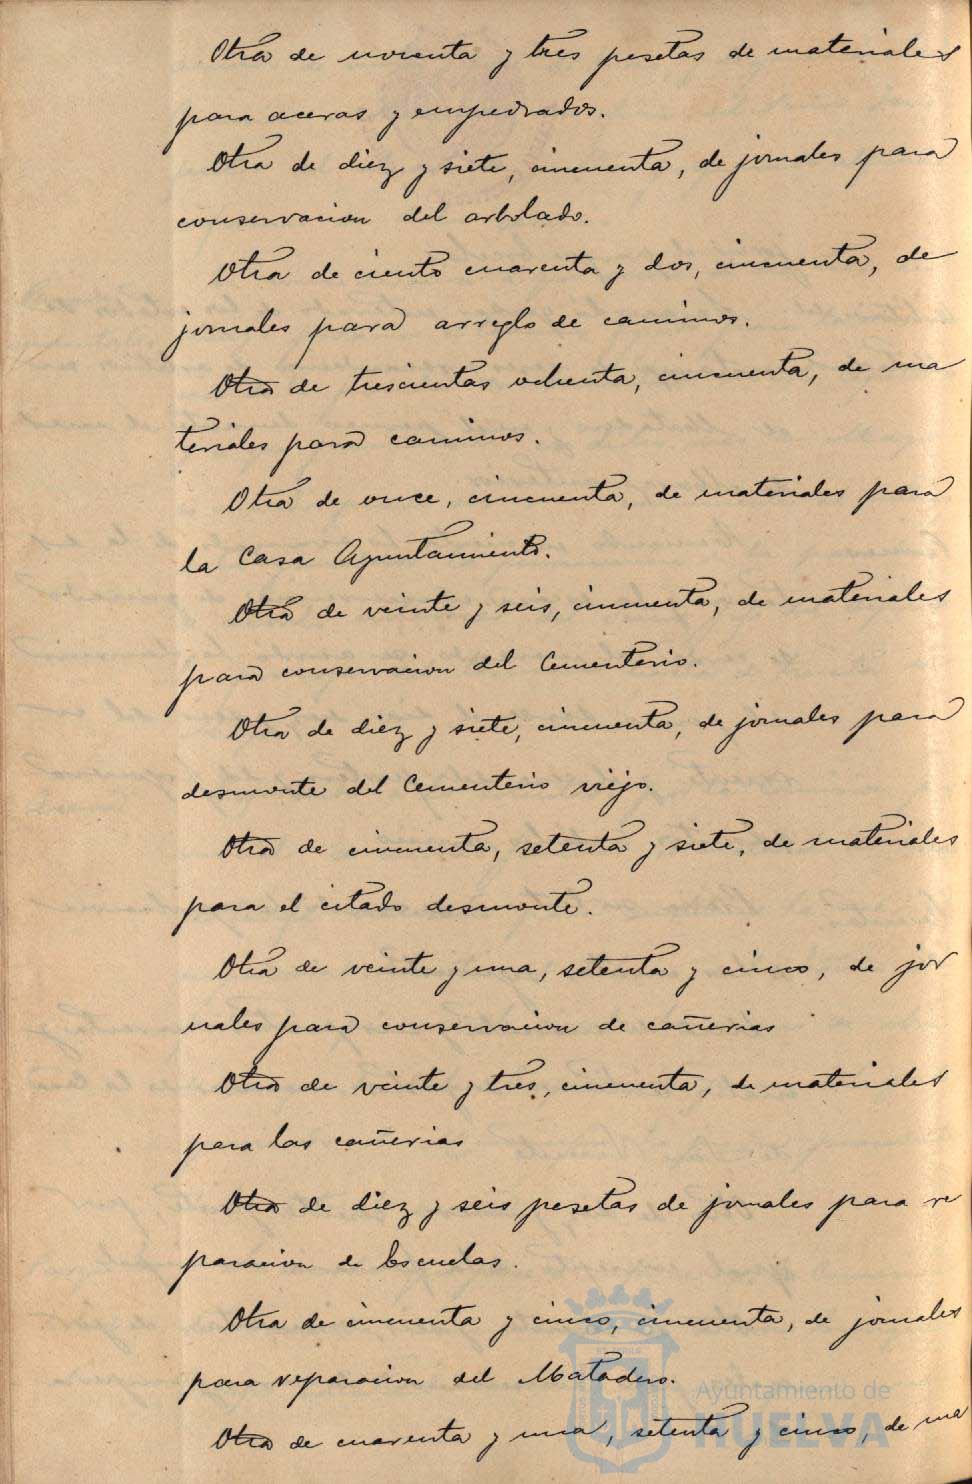 Otra de noventa y tres pesetas de materiales
para aceras y empedrados.
Otra de diez y siete, cincuenta, de jornales para
conservacion del arbolado.
Otra de ciento cuarenta y dos, cincuenta, de
jornales para arreglo de caminos.
Otra de trescientas ochenta, cincuenta, de ma
teriales para caminos.
Otra de once, cincuenta, de materiales para
la Casa Ayuntamiento.
Otra de veinte y seis, cincuenta, de materiales
para conservacion del Cementerio.
Otra de diez y siete, cincuenta, de jornales para
desmonte del Cementerio viejo.
Otra de cincuenta, setenta y siete, de materiales
para el citado desmonte.
Otra de veinte y una, setenta y cinco, de jor
nales para conservacion de cañerias
Otra de veinte y tres, cincuenta, de materiales
para las cañerias
Otra de diez y seis pesetas de jornales para re
paracion de Escuelas.
Otra de cincuenta y cinco, cincuenta, de jornales
para reparacion del Matadero.
Otra de cuarenta y una, setenta y cinco, de ma
Ayuntamiento de
HUELVA